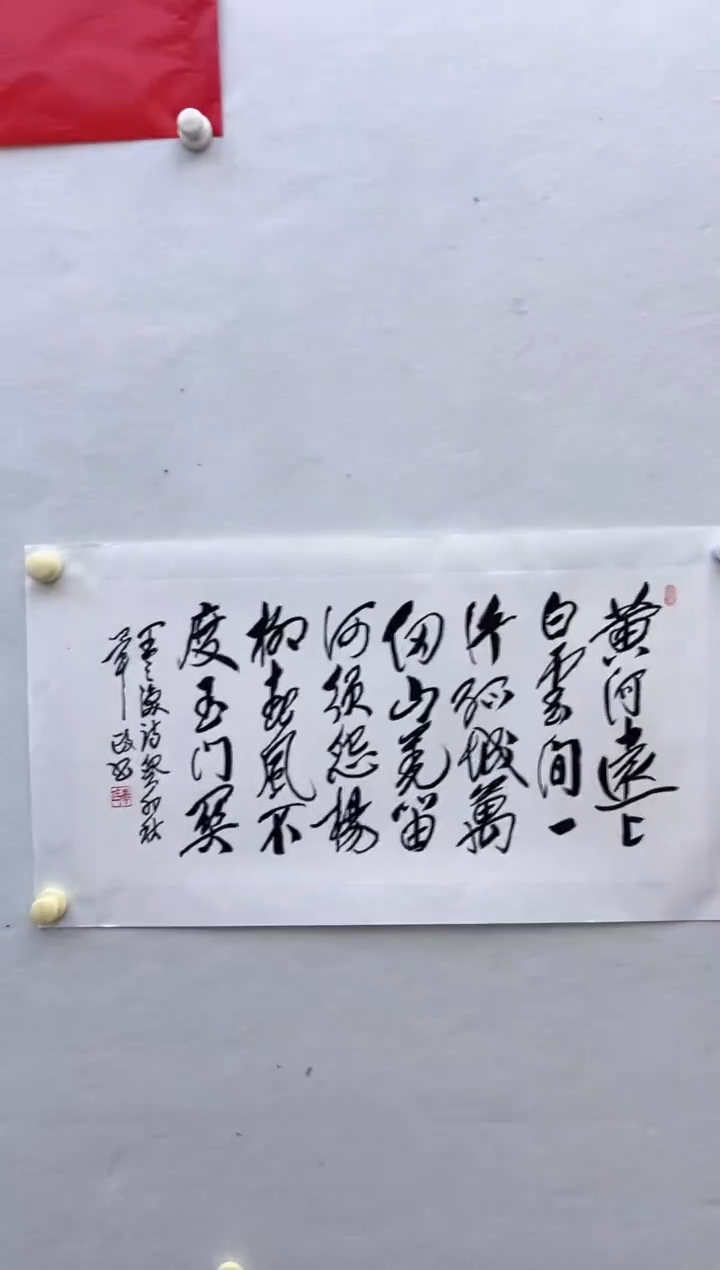 黄河遠上
白雲间一
片孤城萬
仞山羌笛
何须怨楊
柳春風不
度玉门関
王之涣诗癸卯秋